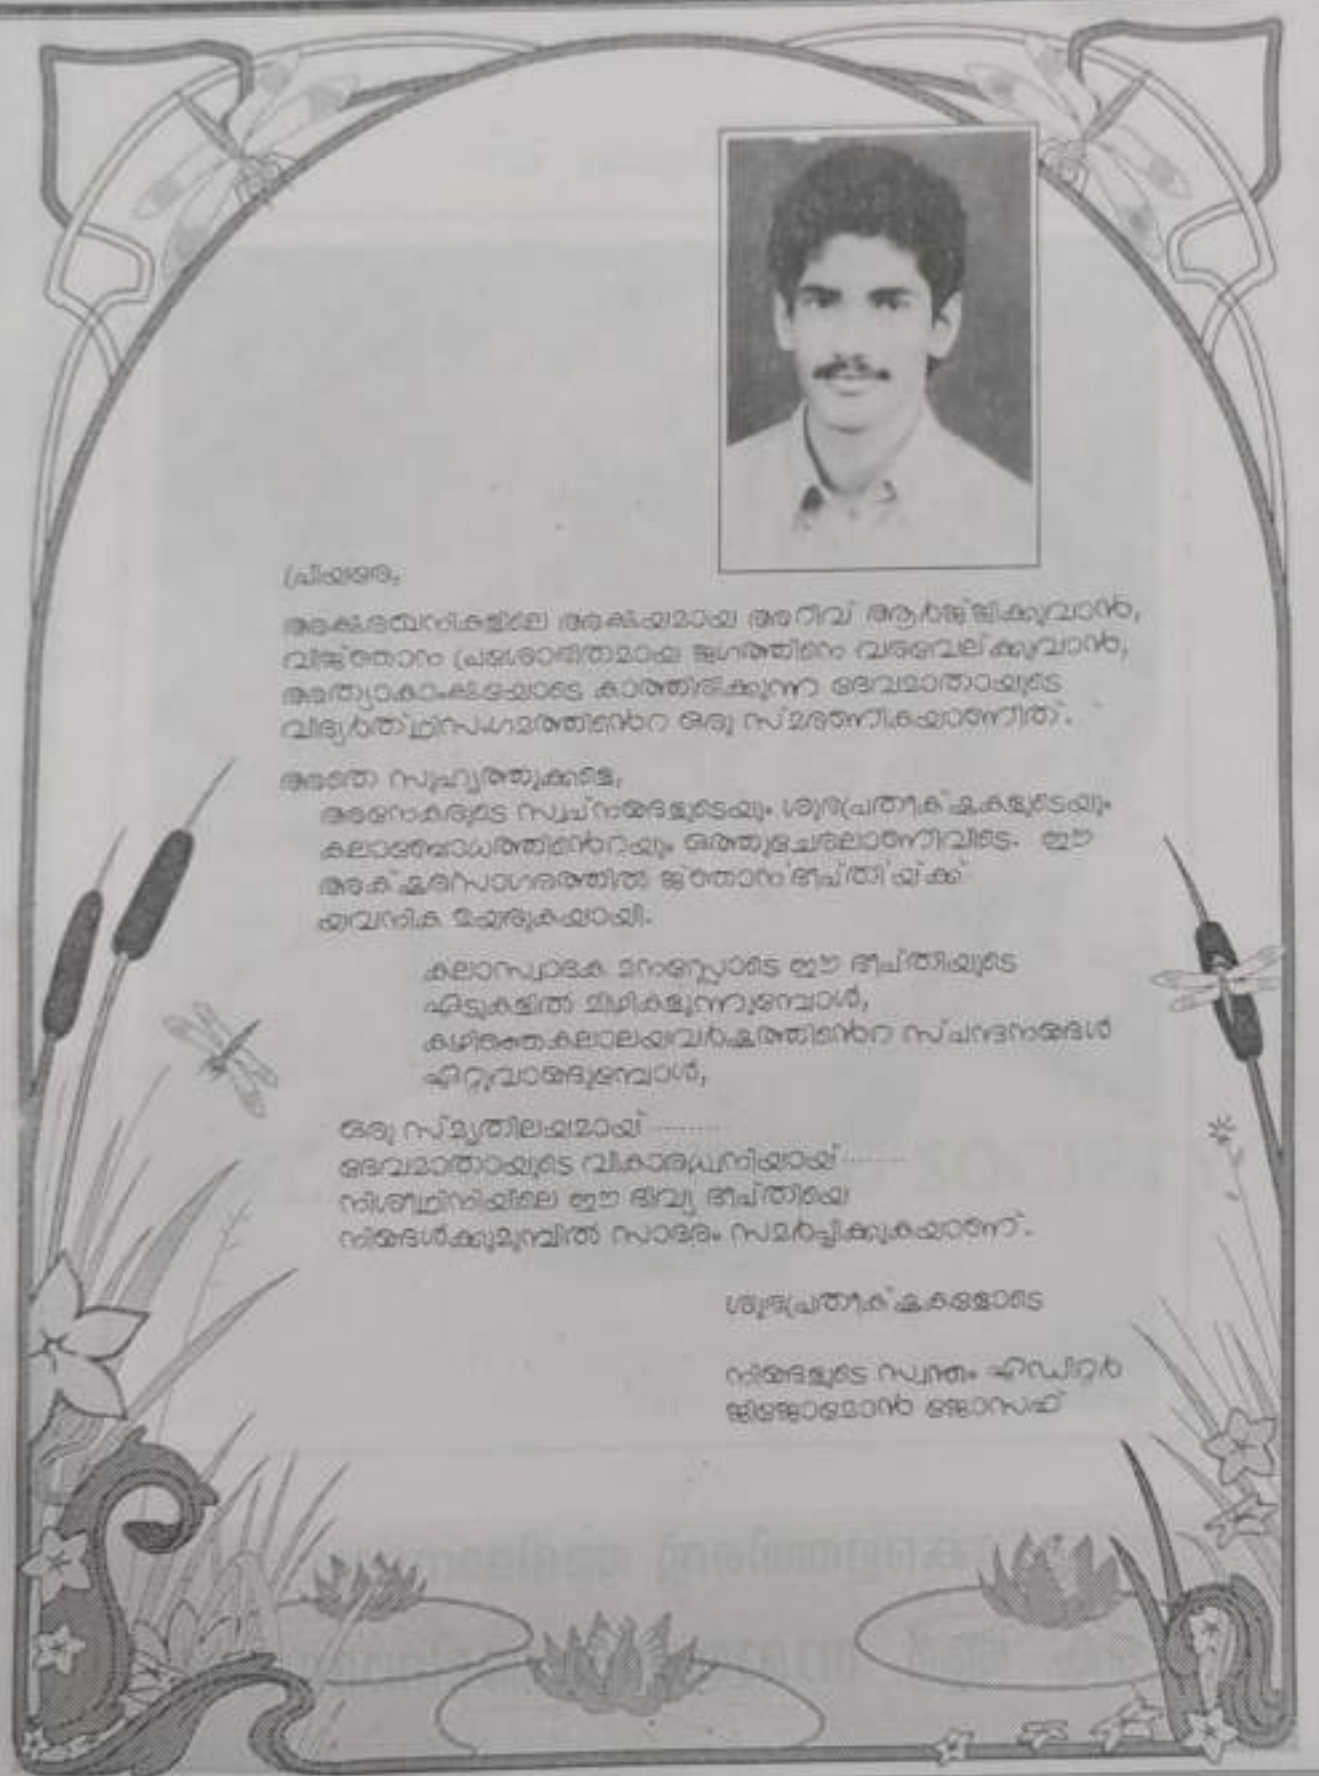 പ്രിയരെ,
അക്ഷരഖനികളിലെ അക്ഷയമായ അറിവ് ആർജ്ജിക്കുവാൻ,
വിജ്ഞാന പ്രശോഭിതമായ ജഗത്തിനെ വരവേല്ക്കുവാൻ,
അത്യാകാംക്ഷയോടെ കാത്തിരിക്കുന്ന ദേവമാതായുടെ
വിദ്യർത്ഥിസംഗമത്തിൻെറ ഒരു സ്മരണികയാണിത്.
അതെ സുഹൃത്തുക്കളെ,
അനേകരുടെ സ്വപ്നങ്ങളുടെയും ശുഭപ്രതീക്ഷകളുടെയും
കലാബോധത്തിൻെറയും ഒത്തുചേരലാണിവിടെ. ഈ
അക്ഷരസാഗരത്തിൽ ജ്ഞാനദീപ്തിയ്ക്ക്
യവനിക ഉയരുകയായി.
കലാസ്വാദക മനസ്സോടെ ഈ ദീപ്തിയുടെ
ഏടുകളിൽ മിഴികളൂന്നുമ്പോൾ,
കഴിഞ്ഞകലാലയവർഷത്തിൻെറ സ്പന്ദനങ്ങൾ
ഏറ്റുവാങ്ങുമ്പോൾ,
ഒരു സ്മൃതിലയമായ് ........
ദേവമാതായുടെ വികാരധ്വനിയായ് .......
നിശീഥിനിയിലെ ഈ ദിവ്യ ദീപ്തിയെ
നിങ്ങൾക്കുമുമ്പിൽ സാദരം സമർപ്പിക്കുകയാണ്.
ശുഭപ്രതീക്ഷകളോടെ
നിങ്ങളുടെ സ്വന്തം എഡിറ്റർ
ജിജോമോൻ ജോസഫ്